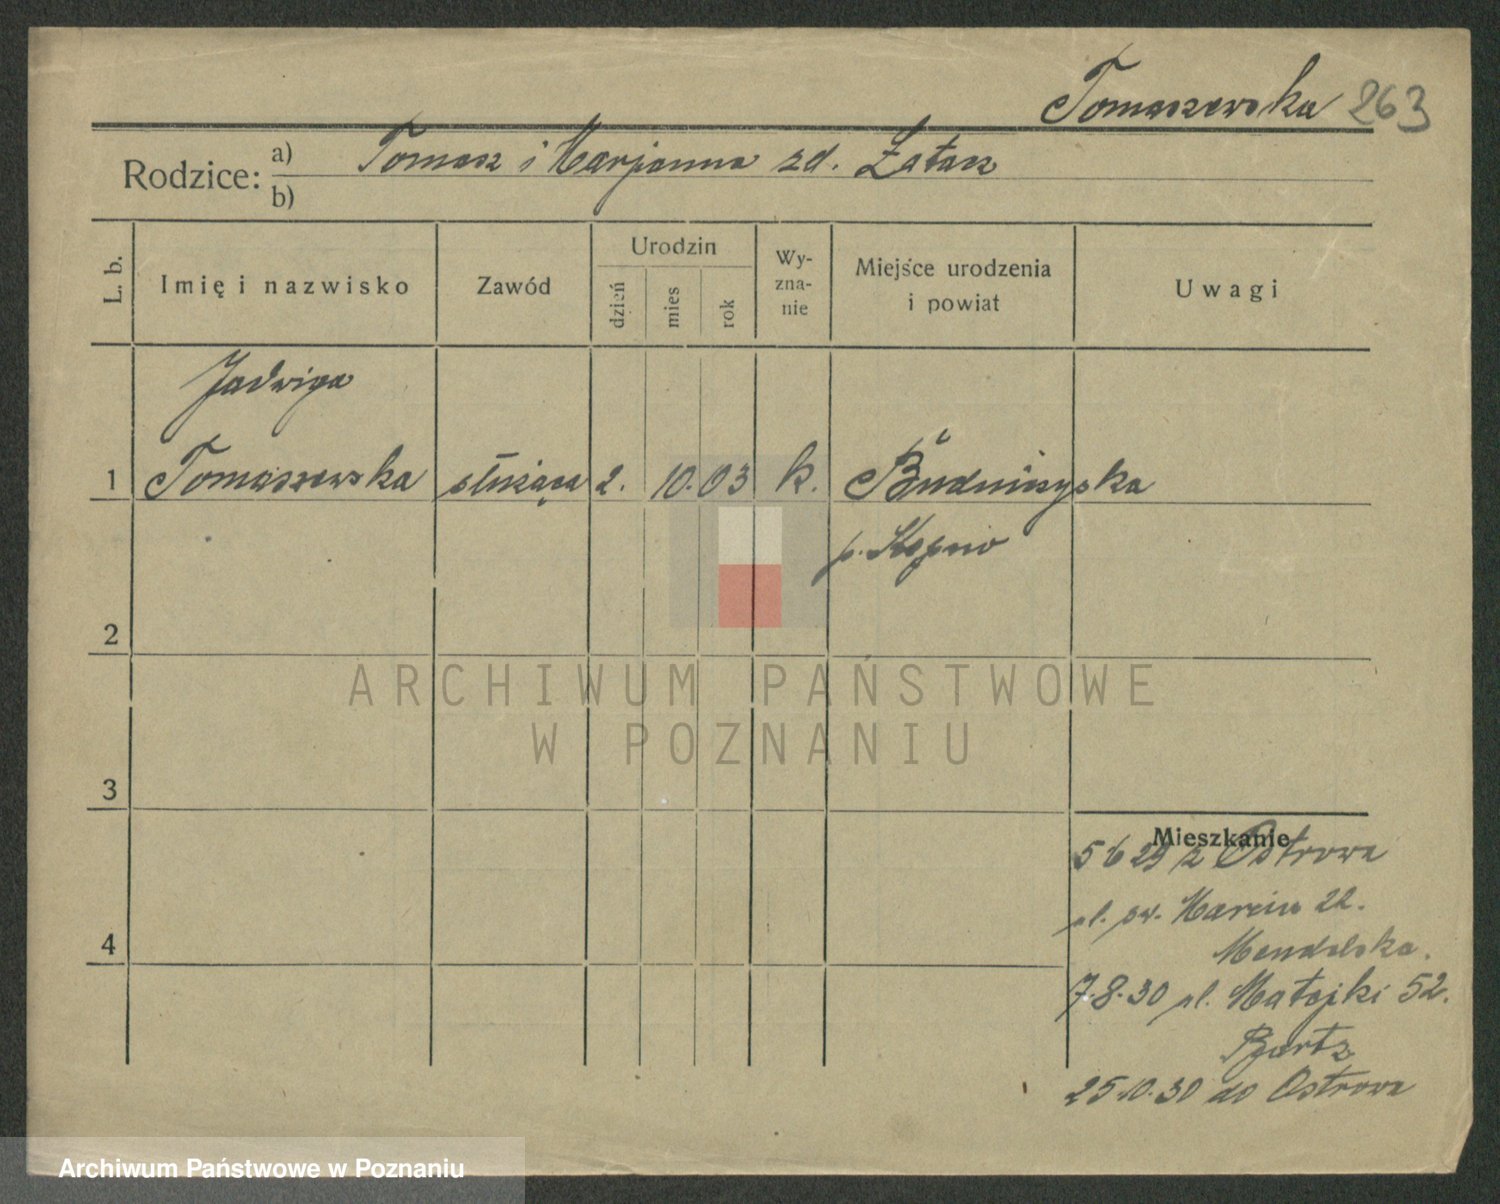 Tomaszewska 263
Rodzice: a) Tomasz i Marjanna zd. Łatacz
b)
L. b.
Imię i nazwisko
Zawód
Urodzin
dzień
mies
rok
Wy-
zna-
nie
Miejsce urodzenia
i powiat
Uwagi
Jadwiga
1 Tomaszewska służąca 2. 10. 03 k.
p. Kępno
2
3
4
Mieszkanie
5 6 29 z Ostrowa
pl. św. Marcin 22.
Mendelska.
7.8.30 pl. Matejki 52.
25.10.30 do Ostrowa
ARCHIWUM PAŃSTWOWE
W POZNANIU
Archiwum Państwowe w Poznaniu